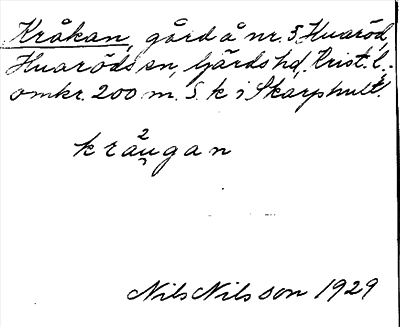 Kråkan, gård å nr. 5 Huaröd,
Huaröds sn, Gärds hd, Krist. l.
omkr. 200 m. S. k i Skarphult.
kråu̯²gan
Nils Nilsson 1929